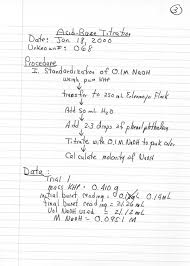 3
Acid-Base Titration
Date: Jan. 18, 2000
Unknown #: 068
Procedure
I. Standardization of 0.1M NaOH
weigh pure KHP
transfer to 250 mL Erlenmeyer Flask
Add 50 mL H2O
Add 2-3 drops of phenolphthalein
Titrate with 0.1M NaOH to pink color
Calculate molarity of NaOH
Data:
Trial 1
mass KHP = 0.410 g
initial buret reading = 0.14 mL
final buret reading = 21.26 mL
Vol NaOH used = 21.12 mL
M NaOH = 0.0951 M